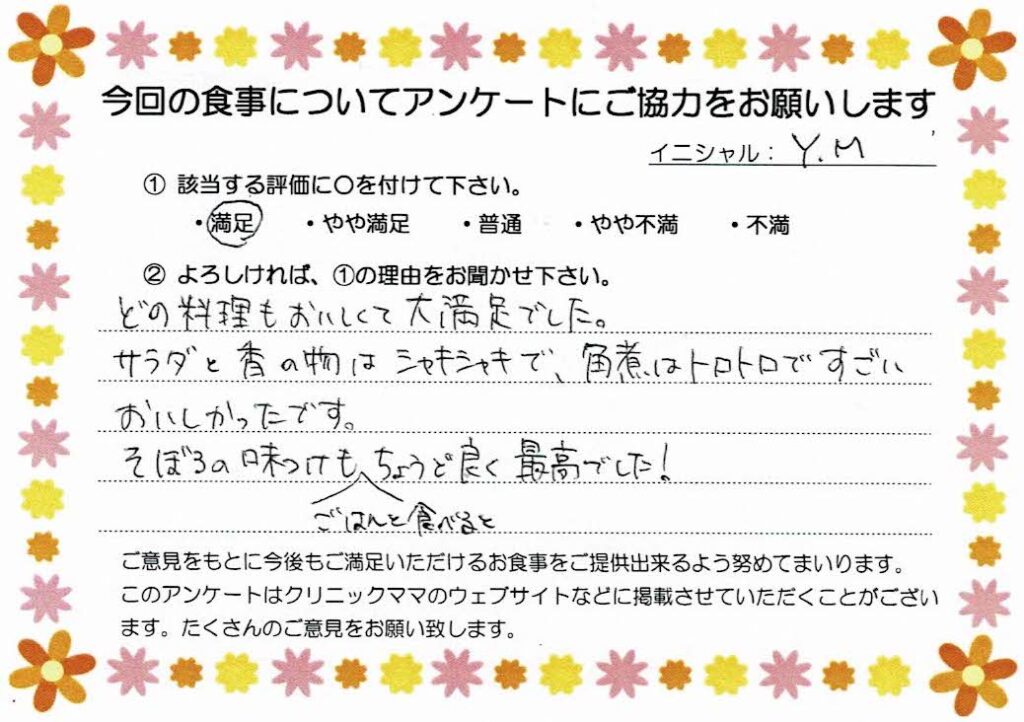 今回の食事についてアンケートにご協力をお願いします
イニシャル： Y.M
① 該当する評価に〇を付けて下さい。
・満足 ・やや満足 ・普通 ・やや不満 ・不満
② よろしければ、①の理由をお聞かせ下さい。
どの料理もおいしくて大満足でした。
サラダと香の物はシャキシャキで、角煮はトロトロですごい
おいしかったです。
そぼろの味つけもちょうど良く最高でした！
ごはんと食べると
ご意見をもとに今後もご満足いただけるお食事をご提供出来るよう努めてまいります。
このアンケートはクリニックママのウェブサイトなどに掲載させていただくことがござい
ます。たくさんのご意見をお願い致します。